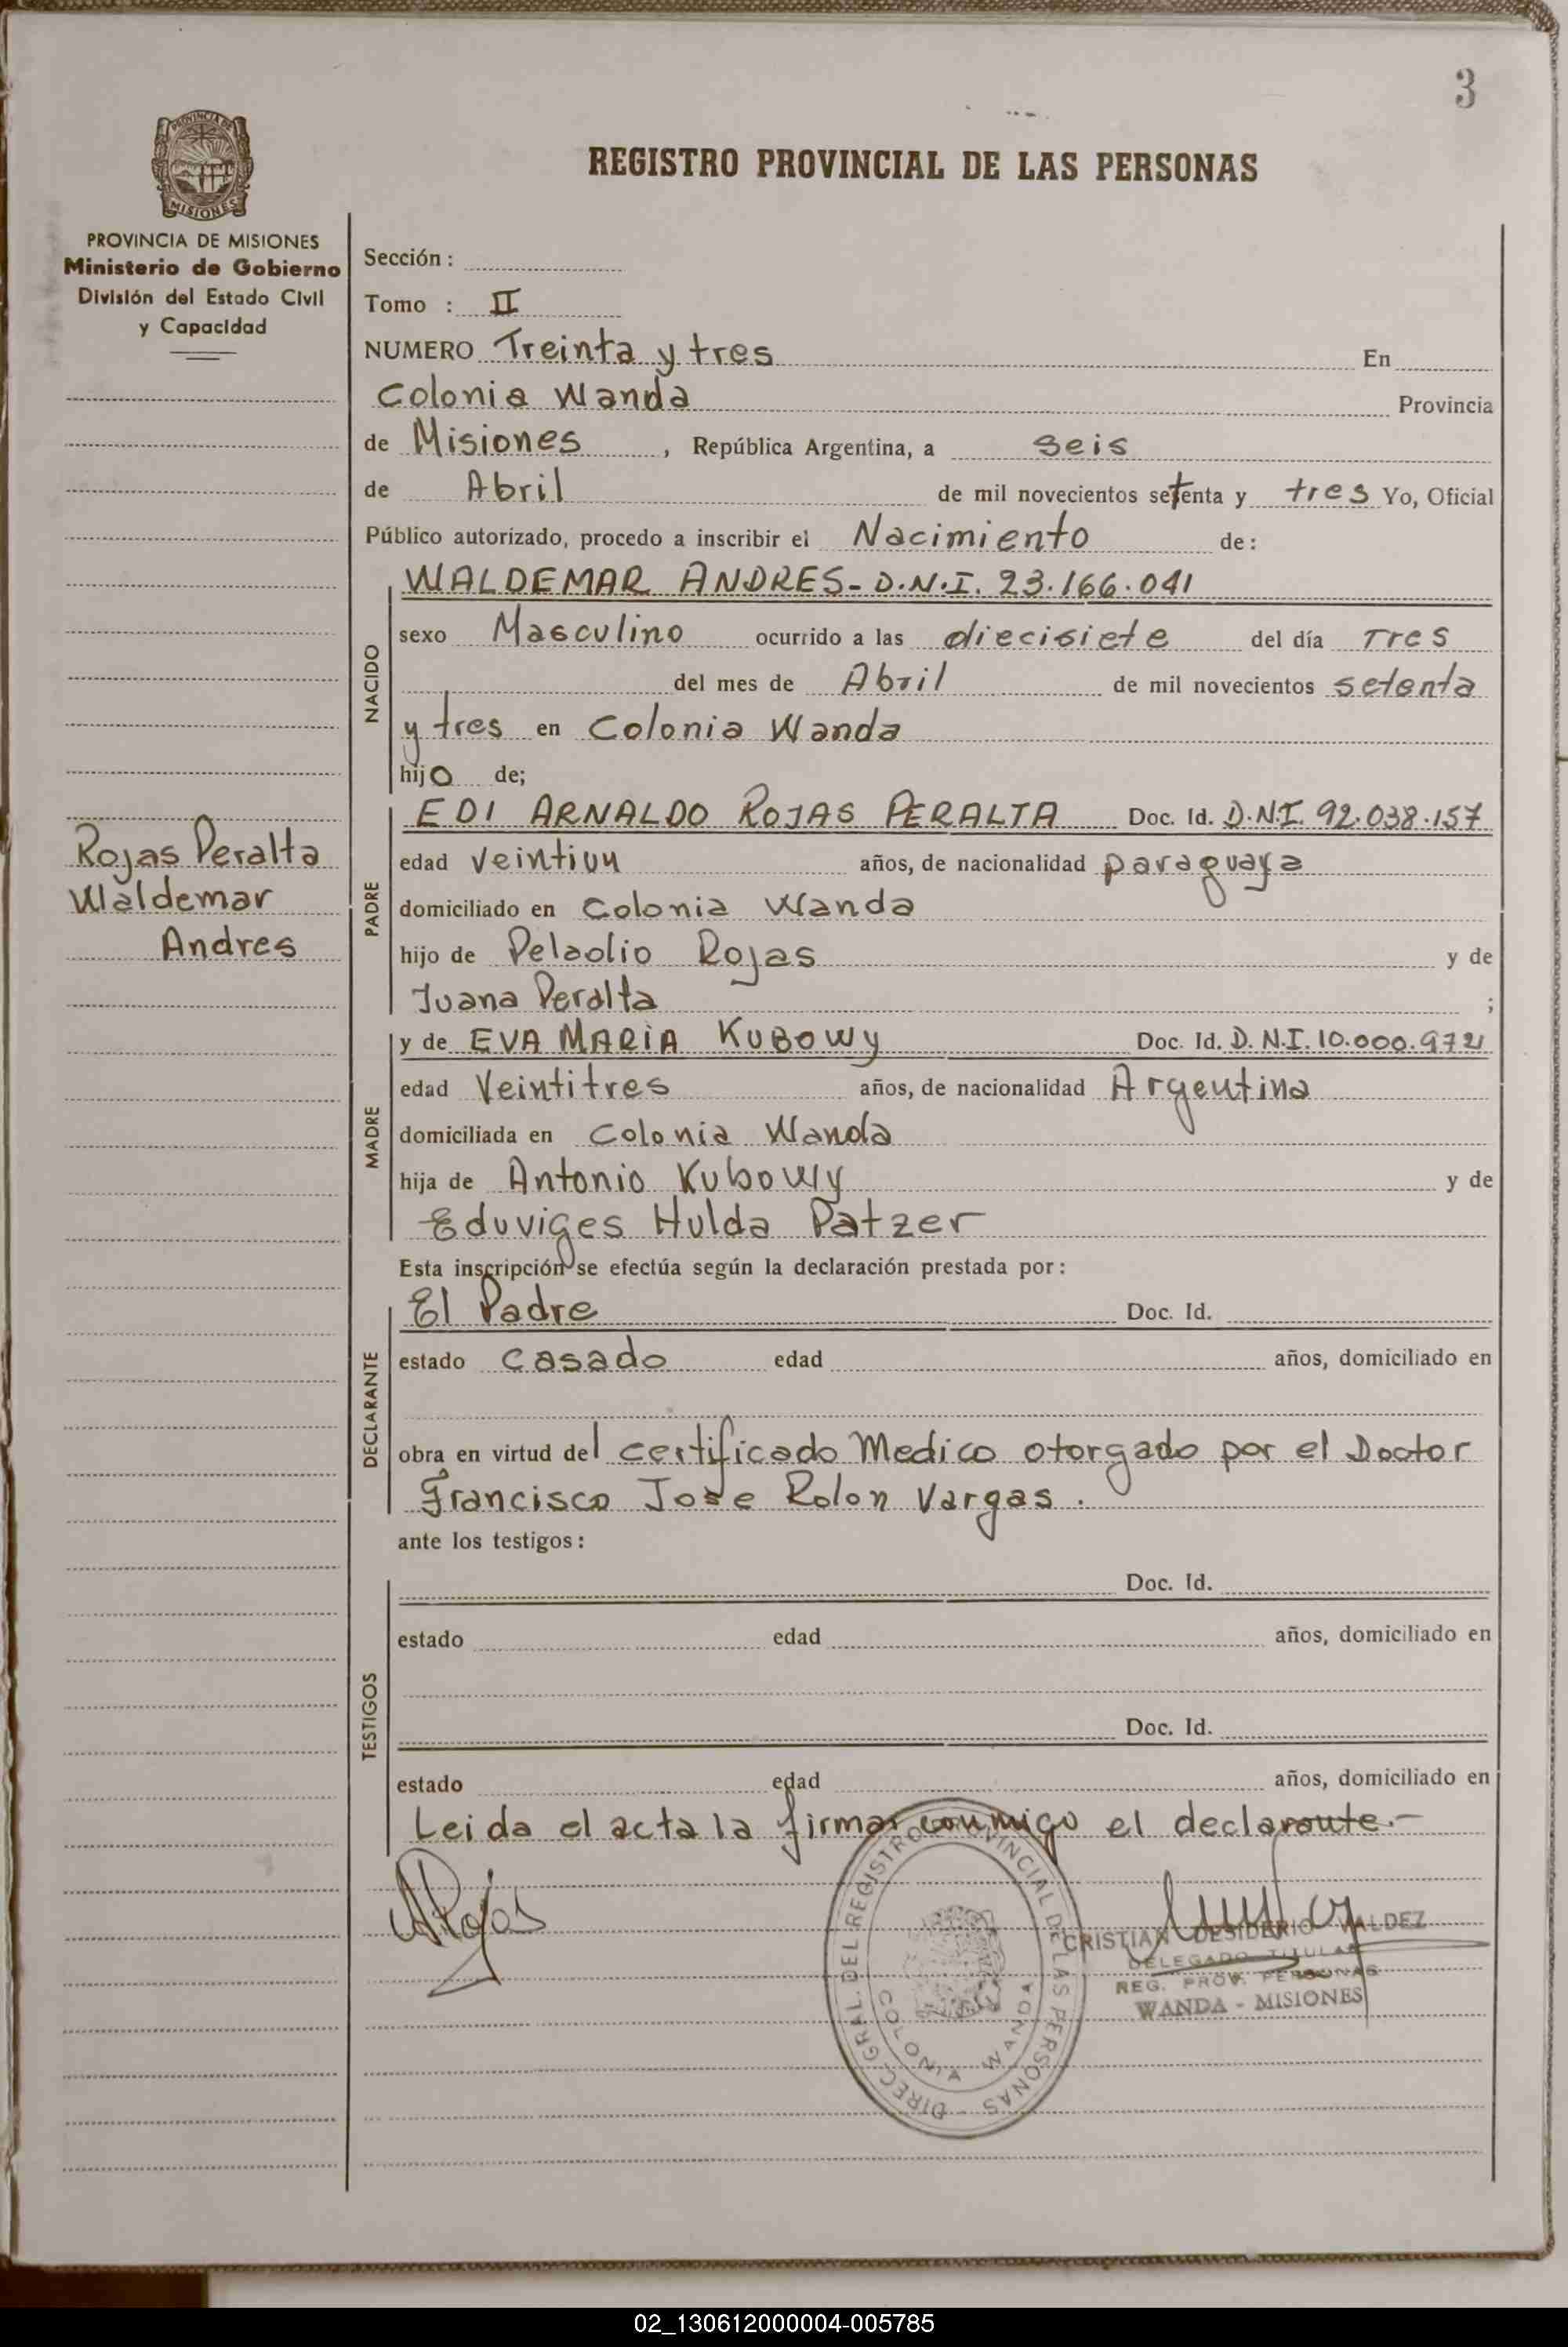 3
PROVINCIA DE
MISIONES
REGISTRO PROVINCIAL DE LAS PERSONAS
PROVINCIA DE MISIONES
Ministerio de Gobierno
División del Estado Civil
y Capacidad
Sección :
Tomo : II
NUMERO Treinta y tres En
Colonia Wanda Provincia
de Misiones , República Argentina, a seis
de Abril de mil novecientos setenta y tres Yo, Oficial
Público autorizado, procedo a inscribir el Nacimiento de:
NACIDO
WALDEMAR ANDRES- D.N.I. 23.166.041
sexo Masculino ocurrido a las diecisiete del día Tres
del mes de Abril de mil novecientos setenta
y tres en Colonia Wanda
hijo de;
Rojas Peralta
Waldemar
Andres
PADRE
EDI ARNALDO ROJAS PERALTA Doc. Id. D.N.I. 92.038.157
edad veintiun años, de nacionalidad paraguaya
domiciliado en Colonia Wanda
hijo de Rojas y de
Juana Peralta ;
MADRE
y de EVA MARIA KUBOWY Doc. Id. D.N.I. 10.000.972
edad Veintitres años, de nacionalidad Argentina
domiciliada en Colonia Wanda
hija de Antonio Kubowy y de
Eduviges Hulda Patzer
Esta inscripción se efectúa según la declaración prestada por :
DECLARANTE
El Padre Doc. Id.
estado casado edad años, domiciliado en
obra en virtud del certificado Medico otorgado por el Doctor
Francisco Jose Rolon Vargas .
ante los testigos :
TESTIGOS
Doc. Id.
estado edad años, domiciliado en
Doc. Id.
estado edad años, domiciliado en
Leida el acta la firmar conmigo el declarante.-
ARojas
DIREC. GRAL. DEL REGISTRO PROVINCIAL DE LAS PERSONAS -
COLONIA WANDA
CRISTIAN DESIDERIO VALDEZ
DELEGADO TITULAR
REG. PROV. PERSONAS
WANDA - MISIONES
02_130612000004-005785